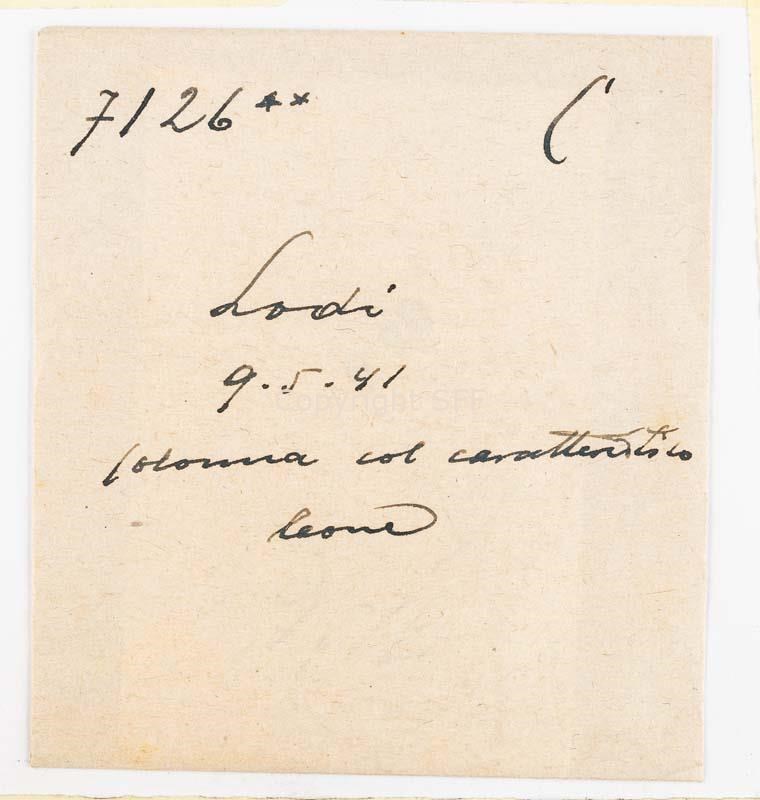 7126** C
Lodi
9.5.41
Colonna col caratteristico
leone
Copyright SFF